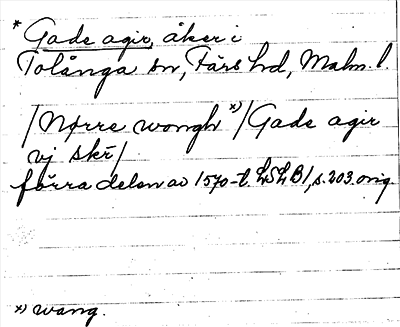 * Gade agir, åker i
Tolånga sn, Färs hd, Malm. l.
/Nørre wongh x)/Gade agir
vj skr/
förra delen av 1570-t. LSLB1, s. 203. orig.
x) wang.